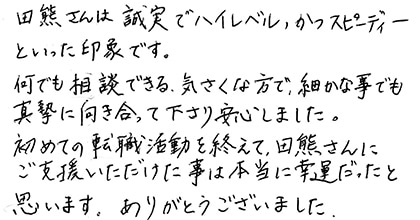 田熊さんは誠実でハイレベル,かつスピーディー
といった印象です。
何でも相談できる、気さくな方で、細かな事でも
真摯に向き合って下さり安心しました。
初めての転職活動を終えて、田熊さんに
ご支援いただけた事は本当に幸運だったと
思います。ありがとうございました.